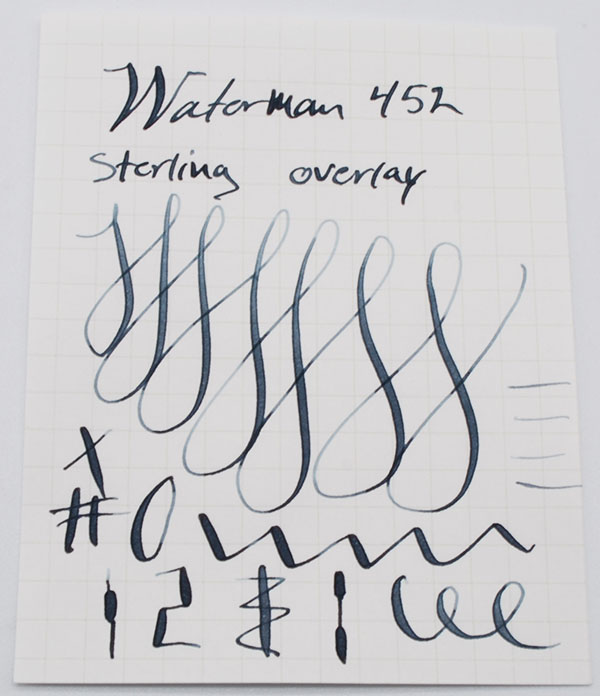 Waterman 452
Sterling overlay
X
# 0
1 2